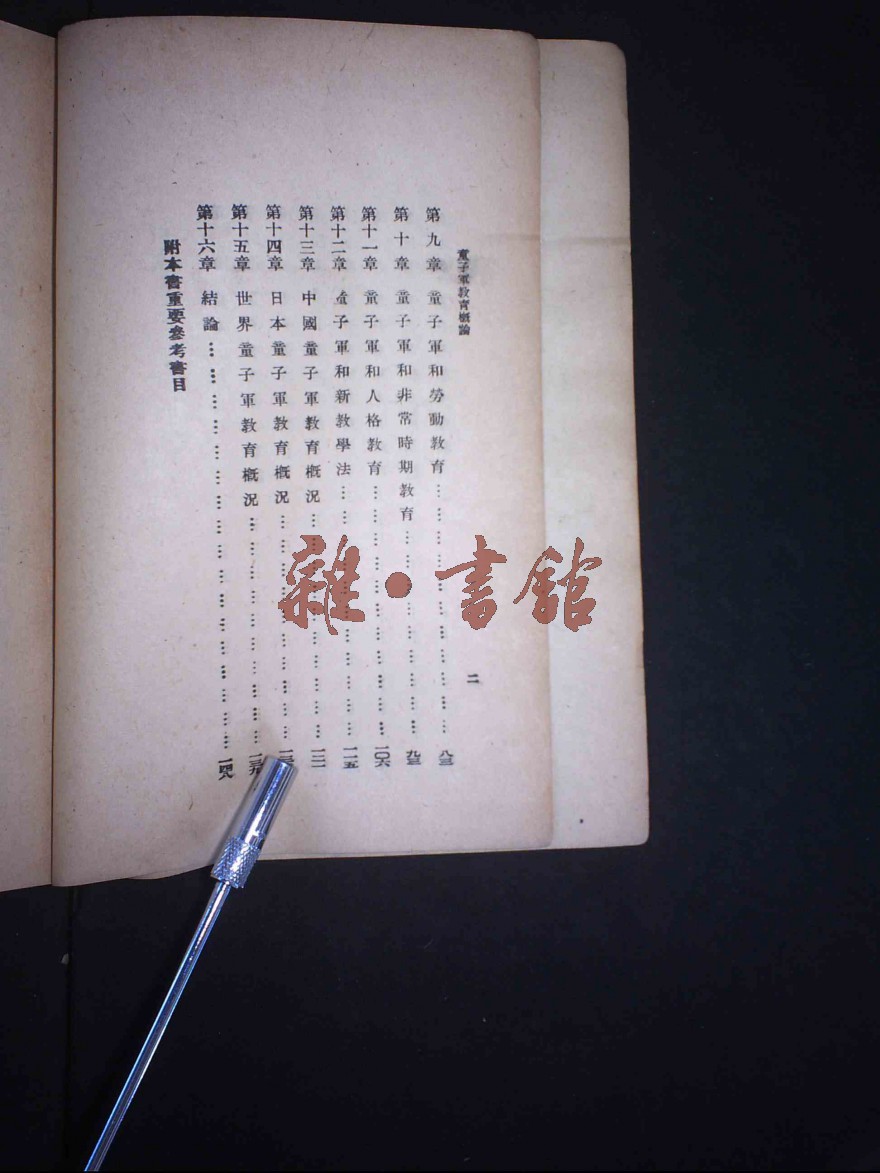 童子軍教育概論
二
第九章 童子軍和勞動教育……………………………八三
第十章 童子軍和非常時期教育………………………九三
第十一章 童子軍和人格教育…………………………一〇六
第十二章 童子軍和新教學法…………………………一一五
第十三章 中國童子軍教育概況………………………
第十四章 日本童子軍教育概況………………………
第十五章 世界童子軍教育概況………………………一三九
第十六章 結論…………………………………………一四八
附本書重要參考書目
雜·書館